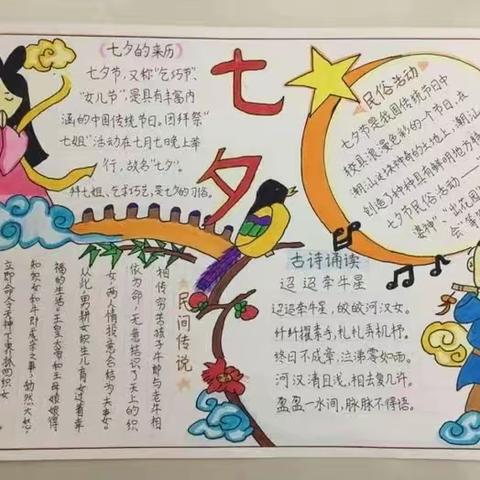 七夕
《七夕的来历》
七夕节,又称"乞巧节"、
"女儿节",是具有丰富内
涵的中国传统节日。因拜祭"
七姐"活动在七月七晚上举
行,故名"七夕"。
拜七姐、乞求巧艺,是七夕的习俗。
民俗活动
七夕节是我国传统节日中
极具浪漫色彩的一个节日,在
潮汕这块神奇的土地上,潮汕
创造了种种具有鲜明地方特
七夕节民俗活动——
婆神""出花园
会"等
民间传说
相传穷苦孩子牛郎与老牛相
依为命,无意结识了天上的织
女,两人情投意合结为夫妻。
从此,男耕女织生儿育女过着幸
福的生活。王皇大帝和王母娘娘得
知织女和牛郎成亲之事,勃然大怒
立即命令天神下界抓回织女
古诗诵读
迢迢牵牛星
迢迢牵牛星,皎皎河汉女。
纤纤擢素手,札札弄机杼。
终日不成章,泣涕零如雨。
河汉清且浅,相去复几许。
盈盈一水间,脉脉不得语。